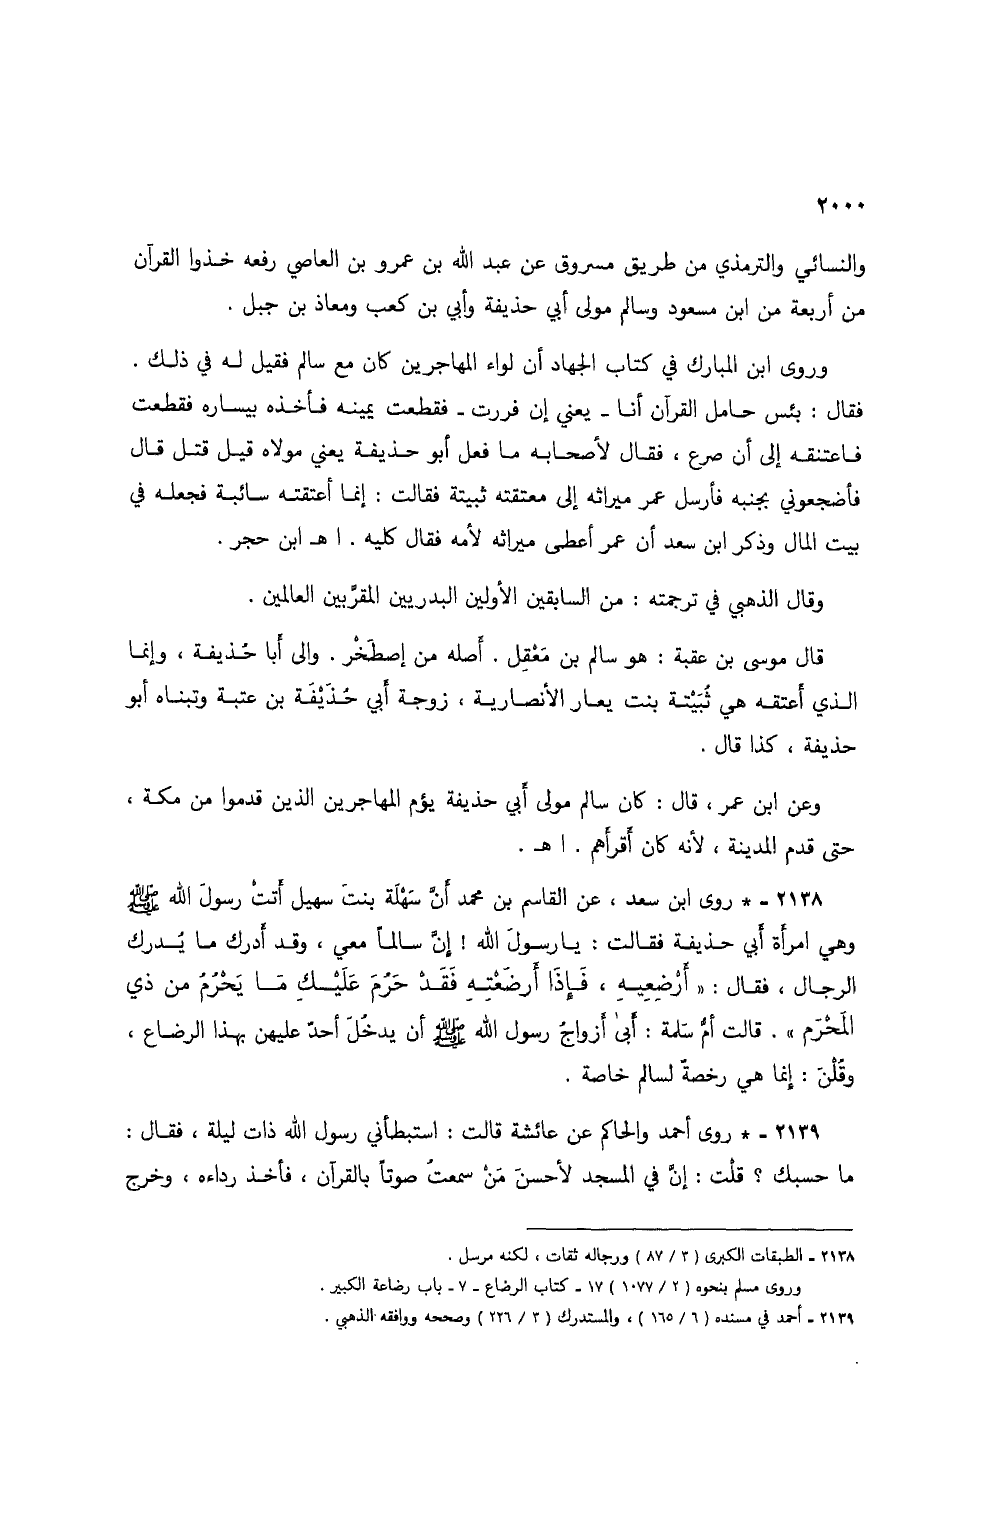 ٢٠٠٠
والنسائي والترمذي من طريق مسروق عن عبد الله بن عمرو بن العاصي رفعه خذوا القرآن
من أربعة من ابن مسعود وسالم مولى أبي حذيفة وأبي بن كعب ومعاذ بن جبل .
وروى ابن المبارك في كتاب الجهاد أن لواء المهاجرين كان مع سالم فقيل له في ذلك .
فقال : بئس حامل القرآن أنا ـ يعني إن فررت ـ فقطعت يمينه فأخذه بيساره فقطعت
فاعتنقه إلى أن صرع ، فقال لأصحابه ما فعل أبو حذيفة يعني مولاه قيل قتل قال
فأضجعوني بجنبه فأرسل عمر ميراثه إلى معتقته ثبيتة فقالت : إنما أعتقته سائبة فجعله في
بيت المال وذكر ابن سعد أن عمر أعطى ميراثه لأمه فقال كليه . ا هـ ابن حجر .
وقال الذهبي في ترجمته : من السابقين الأولين البدريين المقرَّبين العالمين .
قال موسى بن عقبة : هو سالم بن مَعْقِل . أَصله من إصطَخْر . والى أَبا حُذيفة ، وإنما
الذي أَعتقه هي ثُبَيْتة بنت يعار الأنصارية ، زوجة أَبي حُذَيْفَة بن عتبة وتبناه أبو
حذيفة ، كذا قال .
وعن ابن عمر ، قال : كان سالم مولى أَبي حذيفة يؤم المهاجرين الذين قدموا من مكة ،
حتى قدم المدينة ، لأنه كان أَقرأَهم . ا هـ .
٢١٣٨ ـ * روى ابن سعد ، عن القاسم بن محمد أَنَّ سَهْلَة بنتَ سهيل أَتتْ رسولَ الله ﷺ
وهي امرأَة أَبي حذيفة فقالت : يارسولَ الله ! إنَّ سالماً معي ، وقد أَدرك ما يُدرك
الرجال ، فقال : « أَرْضِعِيهِ ، فَإِذَا أَرضَعْتِهِ فَقَدْ حَرُمَ عَلَيْكِ مَا يَحْرُمُ من ذي
المَحْرَم » . قالت أمُّ سَلمة : أَبىٰ أَزواجُ رسول الله ﷺ أن يدخُلَ أحدٌ عليهن بهذا الرضاع ،
وقُلْنَ : إنما هي رخصةٌ لسالم خاصة .
٢١٣٩ ـ * روى أحمد والحاكم عن عائشة قالت : استبطأني رسول الله ذات ليلة ، فقال :
ما حسبك ؟ قلْت : إنَّ في المسجد لأحسنَ مَنْ سمعتُ صوتاً بالقرآن ، فأخذ رداءه ، وخرج
٢١٣٨ ـ الطبقات الكبرى ( ٣ / ٨٧ ) ورجاله ثقات ، لكنه مرسل .
وروى مسلم بنحوه ( ٢ / ١٠٧٧ ) ١٧ ـ كتاب الرضاع ـ ٧ ـ باب رضاعة الكبير .
٢١٣٩ ـ أحمد في مسنده ( ٦ / ١٦٥ ) ، والمستدرك ( ٣ / ٢٢٦ ) وصححه ووافقه الذهبي .